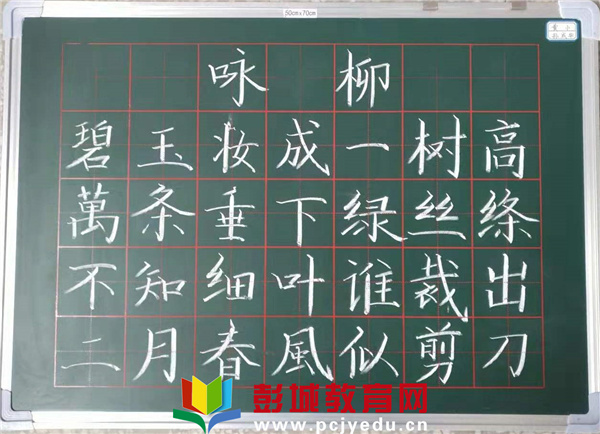 50cm×70cm
咏柳
碧玉妆成一树高
萬条垂下绿丝绦
不知细叶谁裁出
二月春風似剪刀
彭城教育网
www.pcjyedu.cn